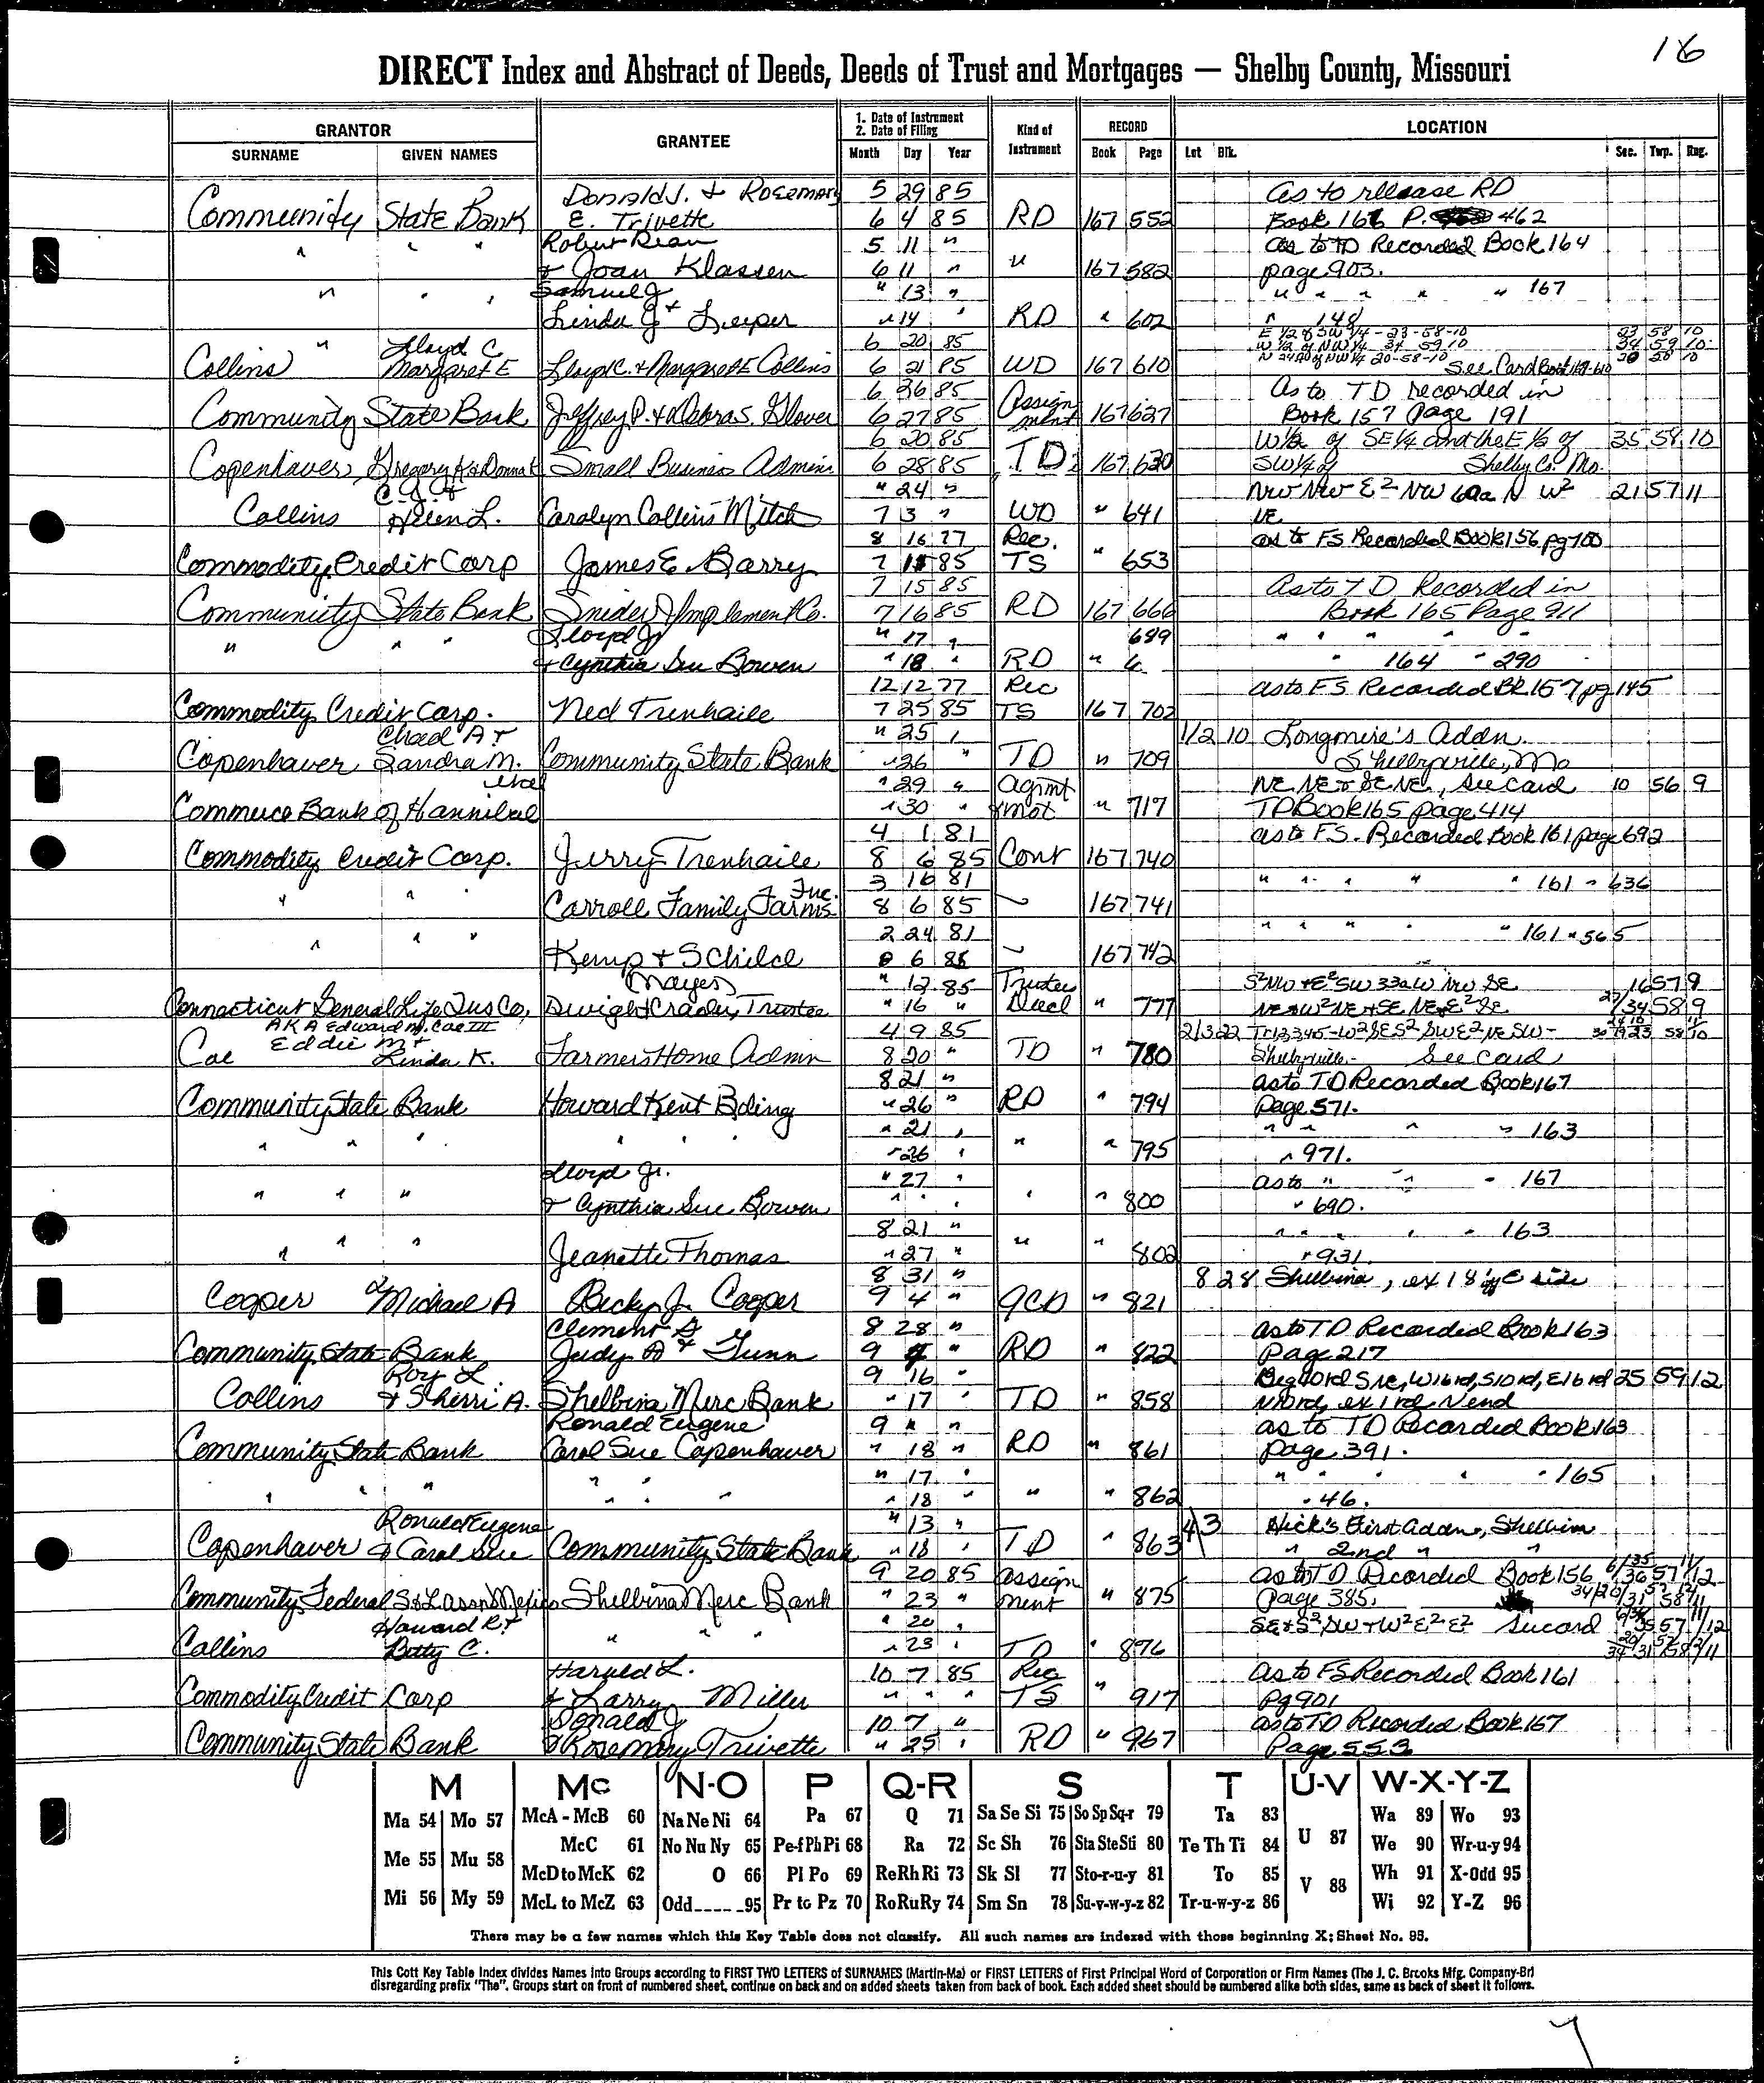 16
DIRECT Index and Abstract of Deeds, Deeds of Trust and Mortgages — Shelby County, Missouri
GRANTOR GRANTEE 1. Date of Instrument 2. Date of Filing Kind of Instrument RECORD LOCATION
SURNAME GIVEN NAMES Month Day Year Book Page Lot Blk. Sec. Twp. Rng.
Donald J. & Rosemary 5 29 85 as to release RD
Community State Bank E. Trivette 6 4 85 RD 167 552 Book 166 P. 462
Robert Dean 5 11 " as to TD Recorded Book 164
" " " & Joan Klassen 6 11 " " 167 582 page 903.
" " " Samuel J " 13 " " " " " " 167
Linda J & Leeper " 14 " RD " 602 " 148
Lloyd C. 6 20 85 E 1/2 of SW 1/4 - 23-58-10 23 58 10
W 1/2 of NW 1/4 34 59 10 34 59 10
Collins " Margaret E Lloyd C. & Margaret E Collins 6 21 85 WD 167 610 20-58-10 See Card Book 167-610 20 58 10
6 26 85 Assign As to TD recorded in
Community State Bank Jeffrey P. & Debra S. Glover 6 27 85 ment 167 627 Book 157 Page 191
6 20 85 W 1/2 of SE 1/4 and the E 1/2 of 35 58 10
Copenhaver, Gregory K & Donna K Small Business Admin 6 28 85 TD 167 630 SW 1/4 of Shelby Co. Mo.
C. J. & " 24 " NW NW E2 NW 60a N W2 21 57 11
Collins Helen L. Carolyn Collins Mitch 7 3 " WD " 641 NE
8 16 77 Rec. as to FS Recorded Book 156 pg 700
Commodity Credit Corp James E. Barry 7 15 85 TS " 653
7 15 85 As to TD Recorded in
Community State Bank Snider Implement Co. 7 16 85 RD 167 666 Book 165 Page 911
" " " Lloyd Jr " 17 " 689 " " " " "
& Cynthia Sue Bowen " 18 " RD " " " 164 " 290
12 12 77 Rec as to FS Recorded Bk 157 pg 145
Commodity Credit Corp. Ned Trenhaile 7 25 85 TS 167 702
Chad A & " 25 " 1/2 10 Longmire's Addn.
Copenhaver Sandra M. Community State Bank " 26 " TD " 709 Shelbyville, Mo
" 29 " Agmt NE NE & SE NE, See Card 10 56 9
Commerce Bank of Hannibal " 30 " & mot " 717 TD Book 165 page 414
4 1 81 as to FS. Recorded Book 161 page 692
Commodity Credit Corp. Jerry Trenhaile 8 6 85 Cont 167 740
3 16 81 " " " " " 161 " 636
" " " Carroll Family Farms Inc. 8 6 85 " 167 741
" " " 2 24 81 " " " " " 161 " 565
Kemp & Schild 8 6 85 " 167 742
" 12 85 Trustee S2NW & E2SW 33a W NW SE 16 57 9
Connecticut General Life Ins Co, Dwight Crader, Trustee " 16 " Deed " 777 NE & W2NE & SE NE & E2SE 27/34 58 9
AKA Edward M. Coe III 4 9 85
Coe Eddie M & Linda K. Farmers Home Admn 8 20 " TD " 780 Shelbyville - See Card
8 21 " as to TD Recorded Book 167
Community State Bank Howard Kent Boling " 26 " RD " 794 page 571.
" " " " " " " 21 " " " " " " 163
" 26 " " 795 " 971.
Lloyd Jr. " 27 " as to " " " 167
" " " & Cynthia Sue Bowen " " " " " 800 " 690.
8 21 " " " " " " 163
" " " Jeanette Thomas " 27 " " " 802 " 931.
8 31 " 8 28 Shelbina, ex 18' off E side
Cooper Michael A Becky J. Cooper 9 4 " QCD " 821
Clement G 8 28 " as to TD Recorded Book 163
Community State Bank Judy & Gunn 9 4 " RD " 822 Page 217
Roy L. 9 16 " Beg 40rd S NE, W16rd, S10rd, E16rd 25 59 12
Collins & Sherri A. Shelbina Merc Bank " 17 " TD " 858 N10rd, ex 1rd N end
Ronald Eugene 9 " " as to TD Recorded Book 163
Community State Bank Carol Sue Copenhaver " 18 " RD " 861 page 391.
" 17 " " " " " " 165
" " " " " " " 18 " " " 862 " 46.
Ronald Eugene " 13 " 4 3 Hick's First addn, Shelbina
Copenhaver & Carol Sue Community State Bank " 18 " TD " 863 " 2nd " "
9 20 85 Assign as to TD Recorded Book 156
Community Federal S & L Assn Mexico Shelbina Merc Bank " 23 " ment " 875 page 385.
Howard R & " 20 " SE & S2 SW & W2 E2 E2 See card
Collins Betty C. " " " " 23 " TD " 876
Harold L. 10 7 85 Rec as to FS Recorded Book 161
Commodity Credit Corp & Larry Miller " " " TS " 917 Pg 901
Donald J 10 7 " as to TD Recorded Book 167
Community State Bank & Rosemary Trivette " 25 " RD " 967 Page 553
M Mc N-O P Q-R S T U-V W-X-Y-Z
Ma 54 Mo 57 McA - McB 60 Na Ne Ni 64 Pa 67 Q 71 Sa Se Si 75 So Sp Sq-r 79 Ta 83 Wa 89 Wo 93
McC 61 No Nu Ny 65 Pe-f Ph Pi 68 Ra 72 Sc Sh 76 Sta Ste Sti 80 Te Th Ti 84 U 87 We 90 Wr-u-y 94
Me 55 Mu 58 McD to McK 62 O 66 Pl Po 69 Re Rh Ri 73 Sk Sl 77 Sto-r-u-y 81 To 85 V 88 Wh 91 X-Odd 95
Mi 56 My 59 McL to McZ 63 Odd 95 Pr to Pz 70 Ro Ru Ry 74 Sm Sn 78 Su-v-w-y-z 82 Tr-u-w-y-z 86 Wi 92 Y-Z 96
There may be a few names which this Key Table does not classify. All such names are indexed with those beginning X; Sheet No. 95.
This Cott Key Table Index divides Names into Groups according to FIRST TWO LETTERS of SURNAMES (Martin-Ma) or FIRST LETTERS of First Principal Word of Corporation or Firm Names (The J. C. Brooks Mfg. Company-Br)
disregarding prefix "The". Groups start on front of numbered sheet, continue on back and on added sheets taken from back of book. Each added sheet should be numbered alike both sides, same as back of sheet it follows.